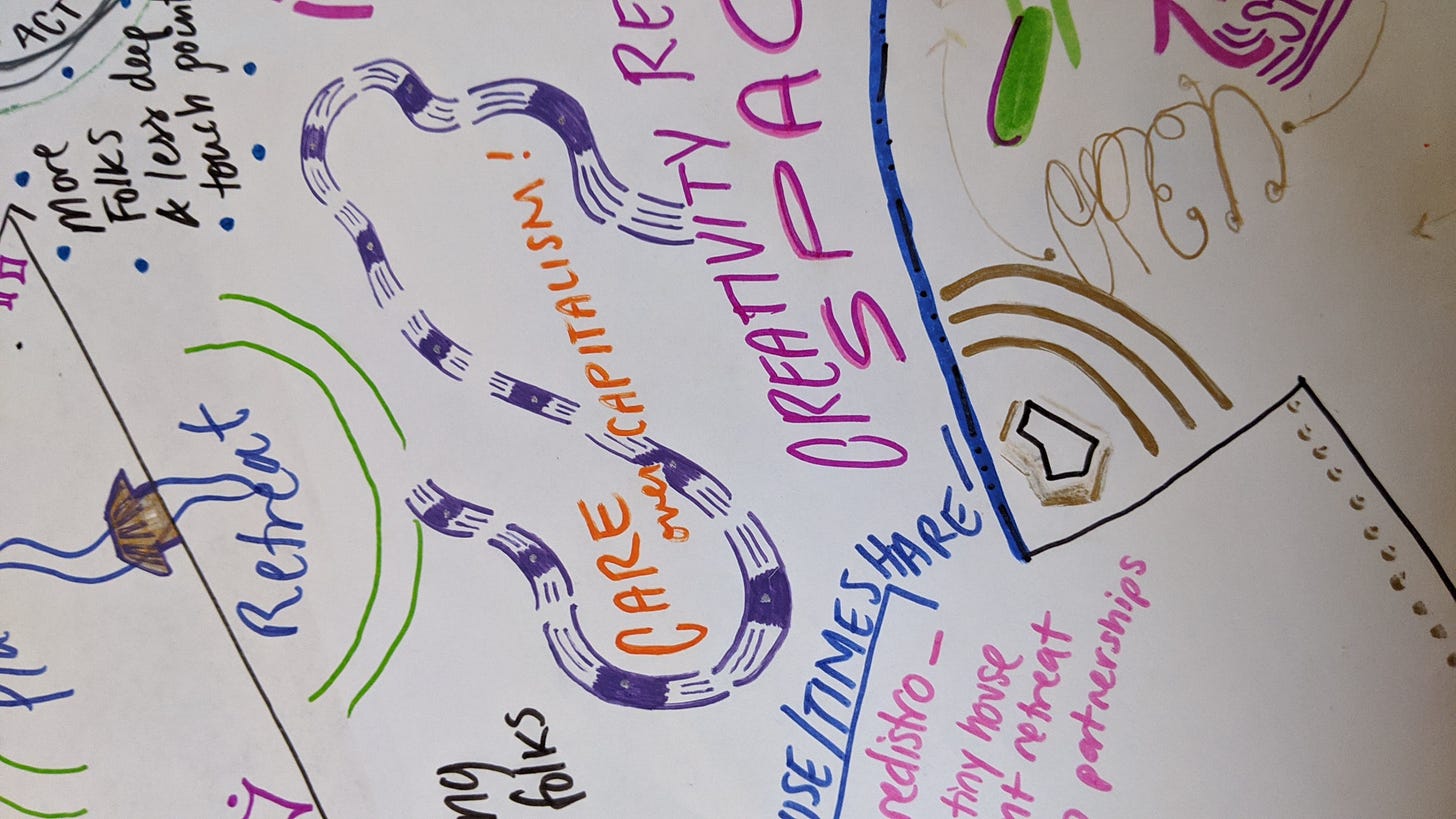 ACT
More
Folks
& less deep
touch point
Retreat
CARE
over CAPITALISM!
CREATIVITY RE
SPAC
ng
folks
USE/TIMESHARE -
redistro -
tiny house
nt retreat
partnerships